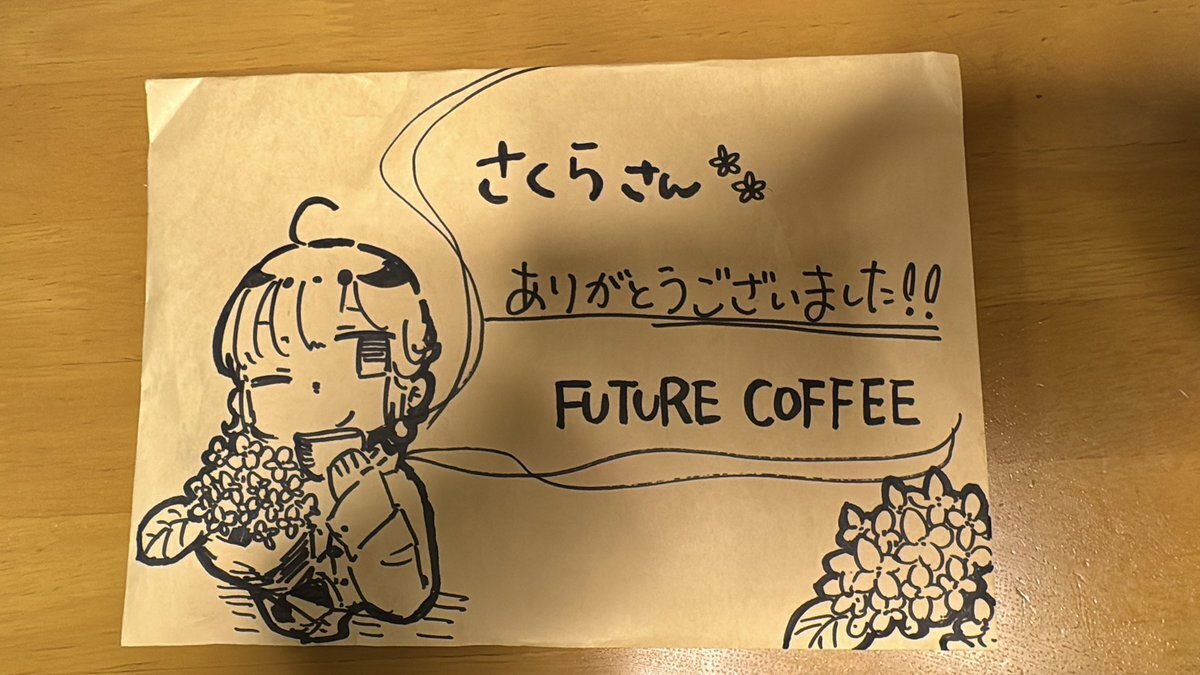 さくらさん
ありがとうございました!!
FUTURE COFFEE